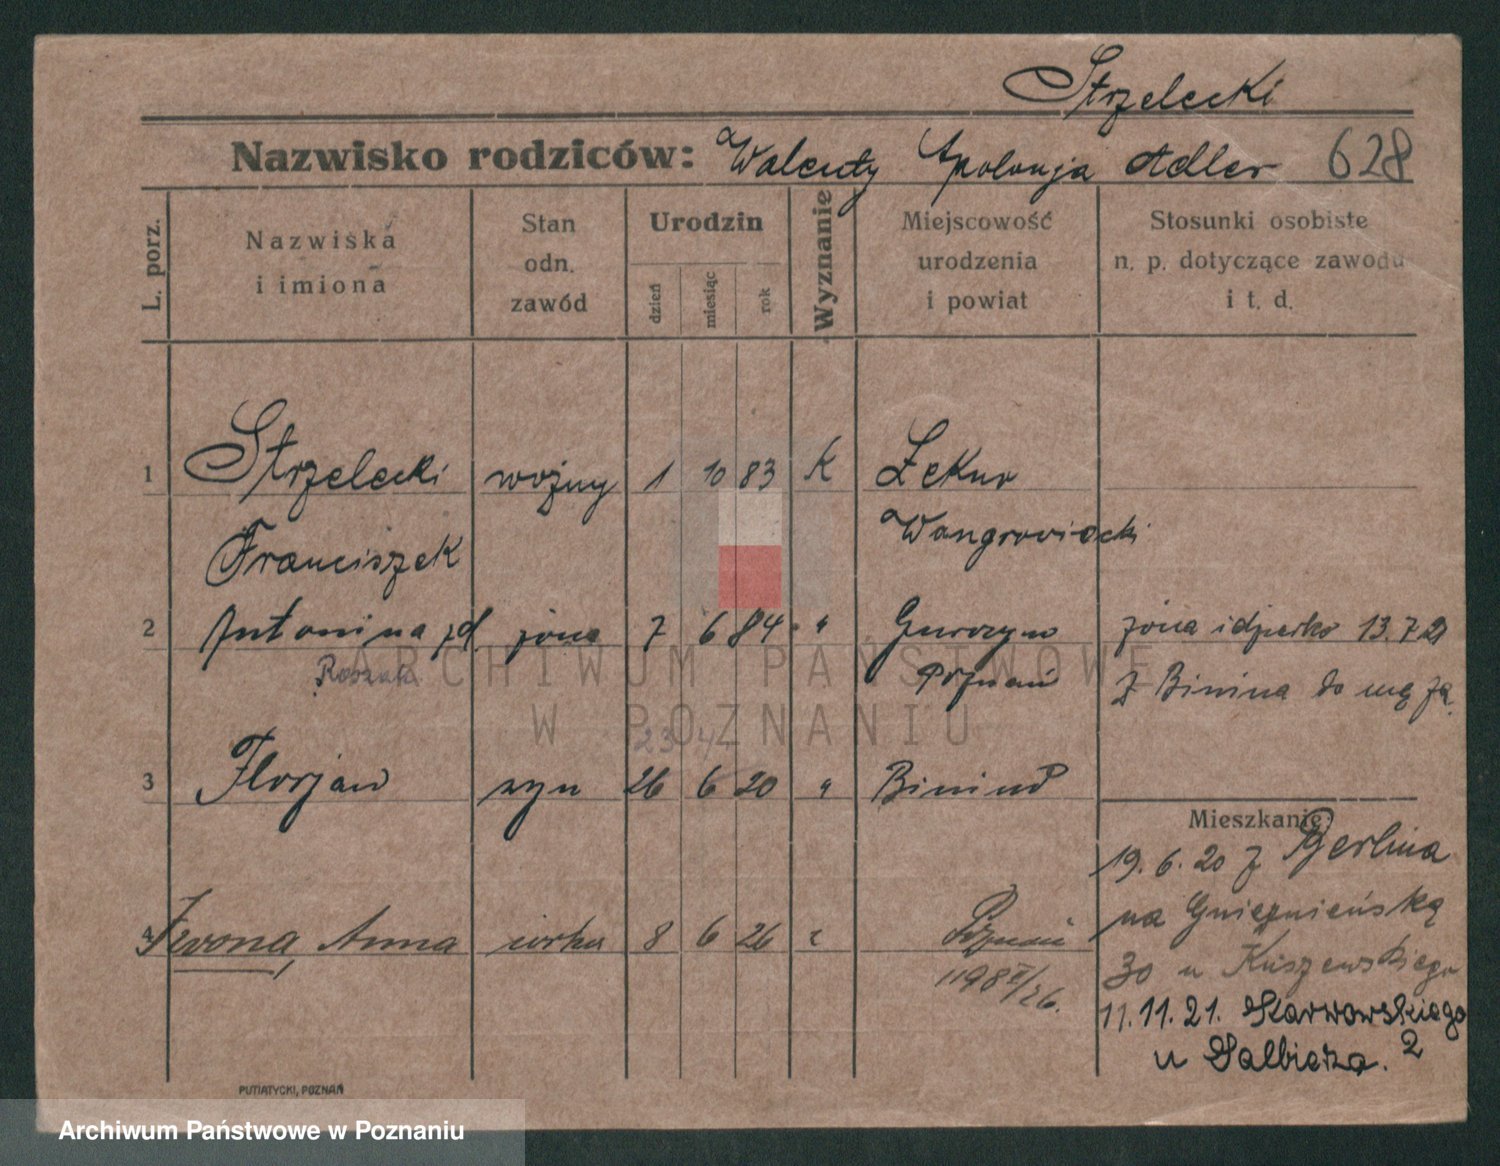 Strzelecki
Nazwisko rodziców: Walenty Apolonja Adler 628
L. porz.
Nazwiska
i imiona
Stan
odn.
zawód
Urodzin
dzień
miesiąc
rok
Wyznanie
Miejscowość
urodzenia
i powiat
Stosunki osobiste
n. p. dotyczące zawodu
i t. d.
1 Strzelecki woźny 1 10 83 K Łekno
Franciszek Wongrowiecki
2 Antonina zd. żona 7 6 84 " żona i dziecko 13.7.21
Roszak Poznań z Binina do męża.
23 4
3 Florjan syn 26 6 20 " Binino
Mieszkanie:
19.6.20 z Berlina
na Gnieźnieńską
4 Iwona, Anna córka 8 6 26 " Poznań
30 u Kuszewskiego
1198 II/26.
11.11.21. Karwowskiego 2
u Galbierza.
PUTIATYCKI, POZNAŃ
ARCHIWUM PAŃSTWOWE
W POZNANIU
Archiwum Państwowe w Poznaniu